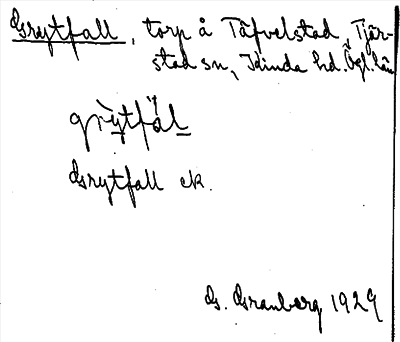 Grytfall, torp å Täfvelstad, Tjär-
stad sn, Kinda hd. Ögl. län
grỳtfál
Grytfall ek.
G. Granberg 1929